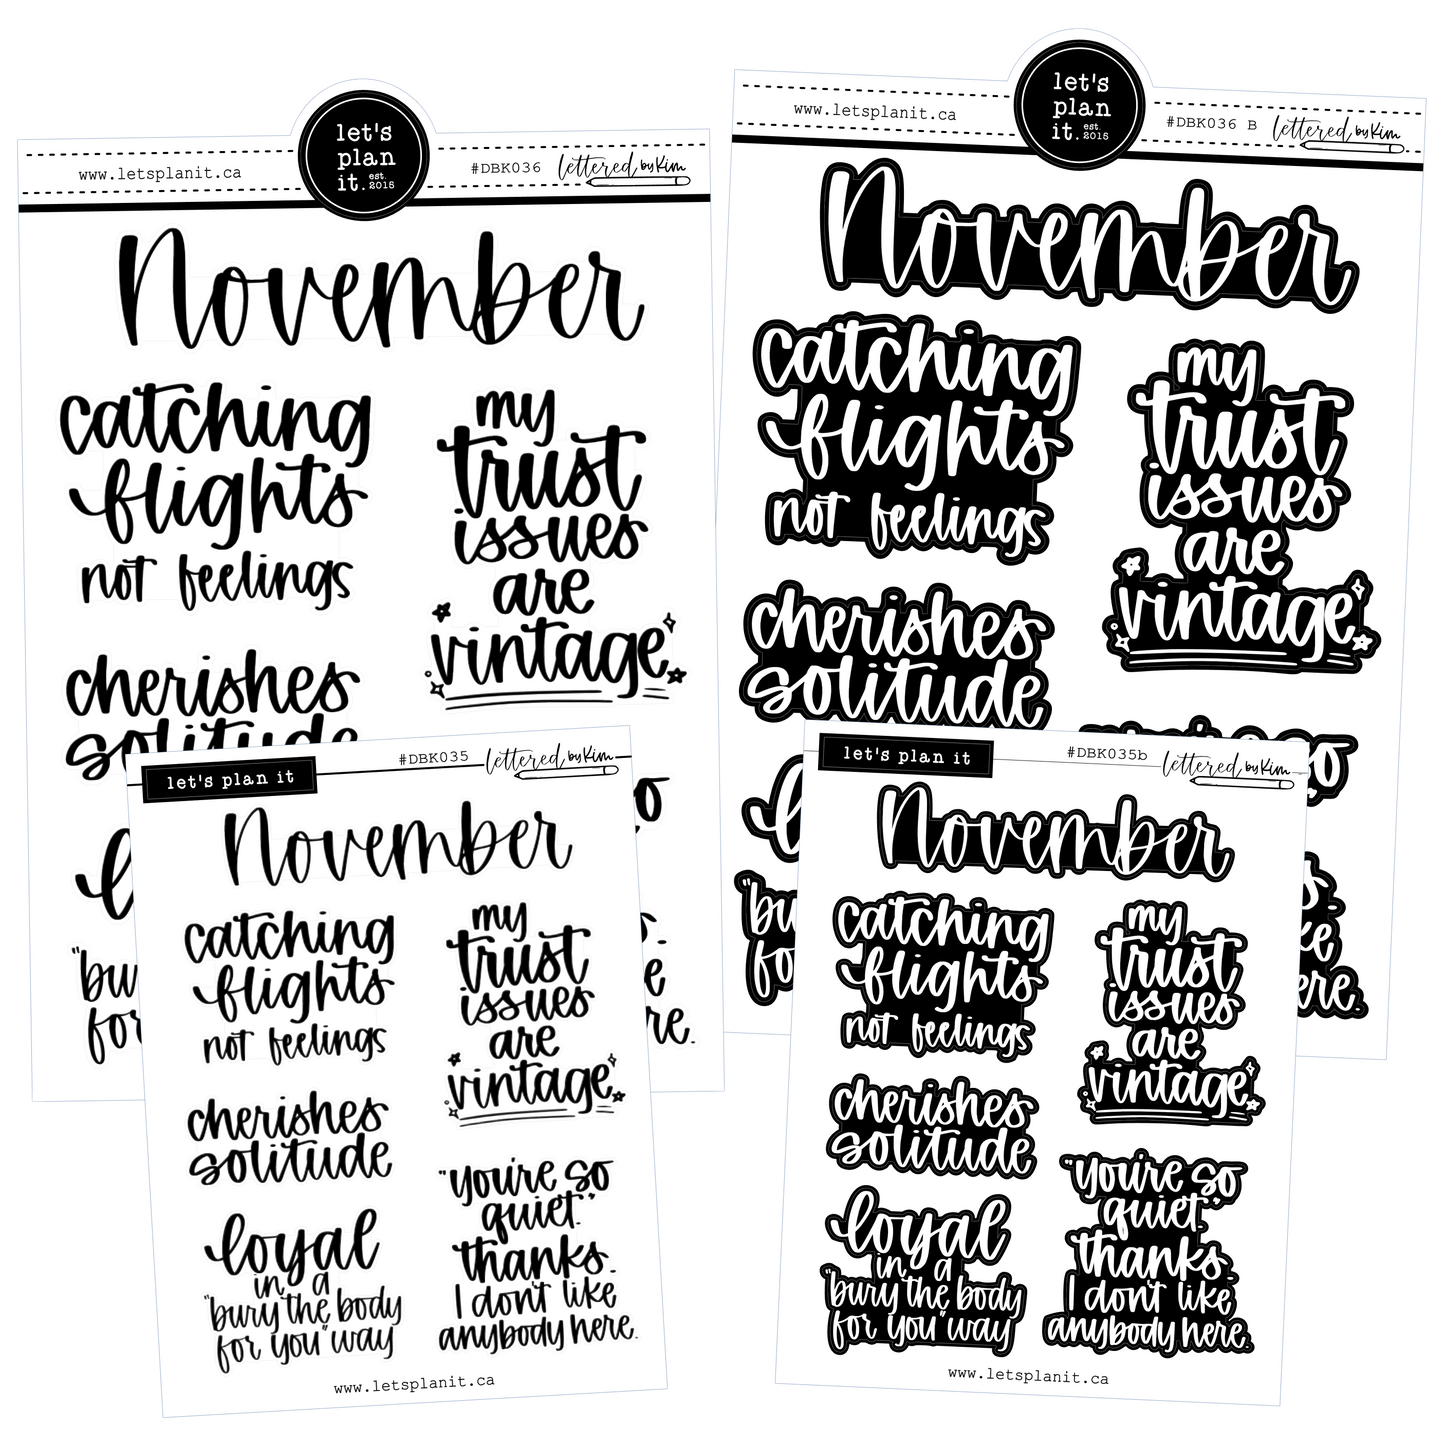 let's
plan
it.
est.
2015
www.letsplanit.ca
#DBK036
lettered by Kim
November
catching
flights
not feelings
my
trust
issues
are
vintage
cherishes
solitude
"bu
for
re.
let's
plan
it.
est.
2015
www.letsplanit.ca
#DBK036 B
lettered by Kim
November
catching
flights
not feelings
my
trust
issues
are
vintage
cherishes
solitude
"bu
fo
ke
ere.
let's plan it
#DBK035
lettered by Kim
November
catching
flights
not feelings
my
trust
issues
are
vintage
cherishes
solitude
loyal
in a
"bury the body
for you" way
"you're so
quiet."
thanks.
I don't like
anybody here.
www.letsplanit.ca
let's plan it
#DBK035b
lettered by Kim
November
catching
flights
not feelings
my
trust
issues
are
vintage
cherishes
solitude
loyal
in a
"bury the body
for you" way
"you're so
quiet."
thanks.
I don't like
anybody here.
www.letsplanit.ca